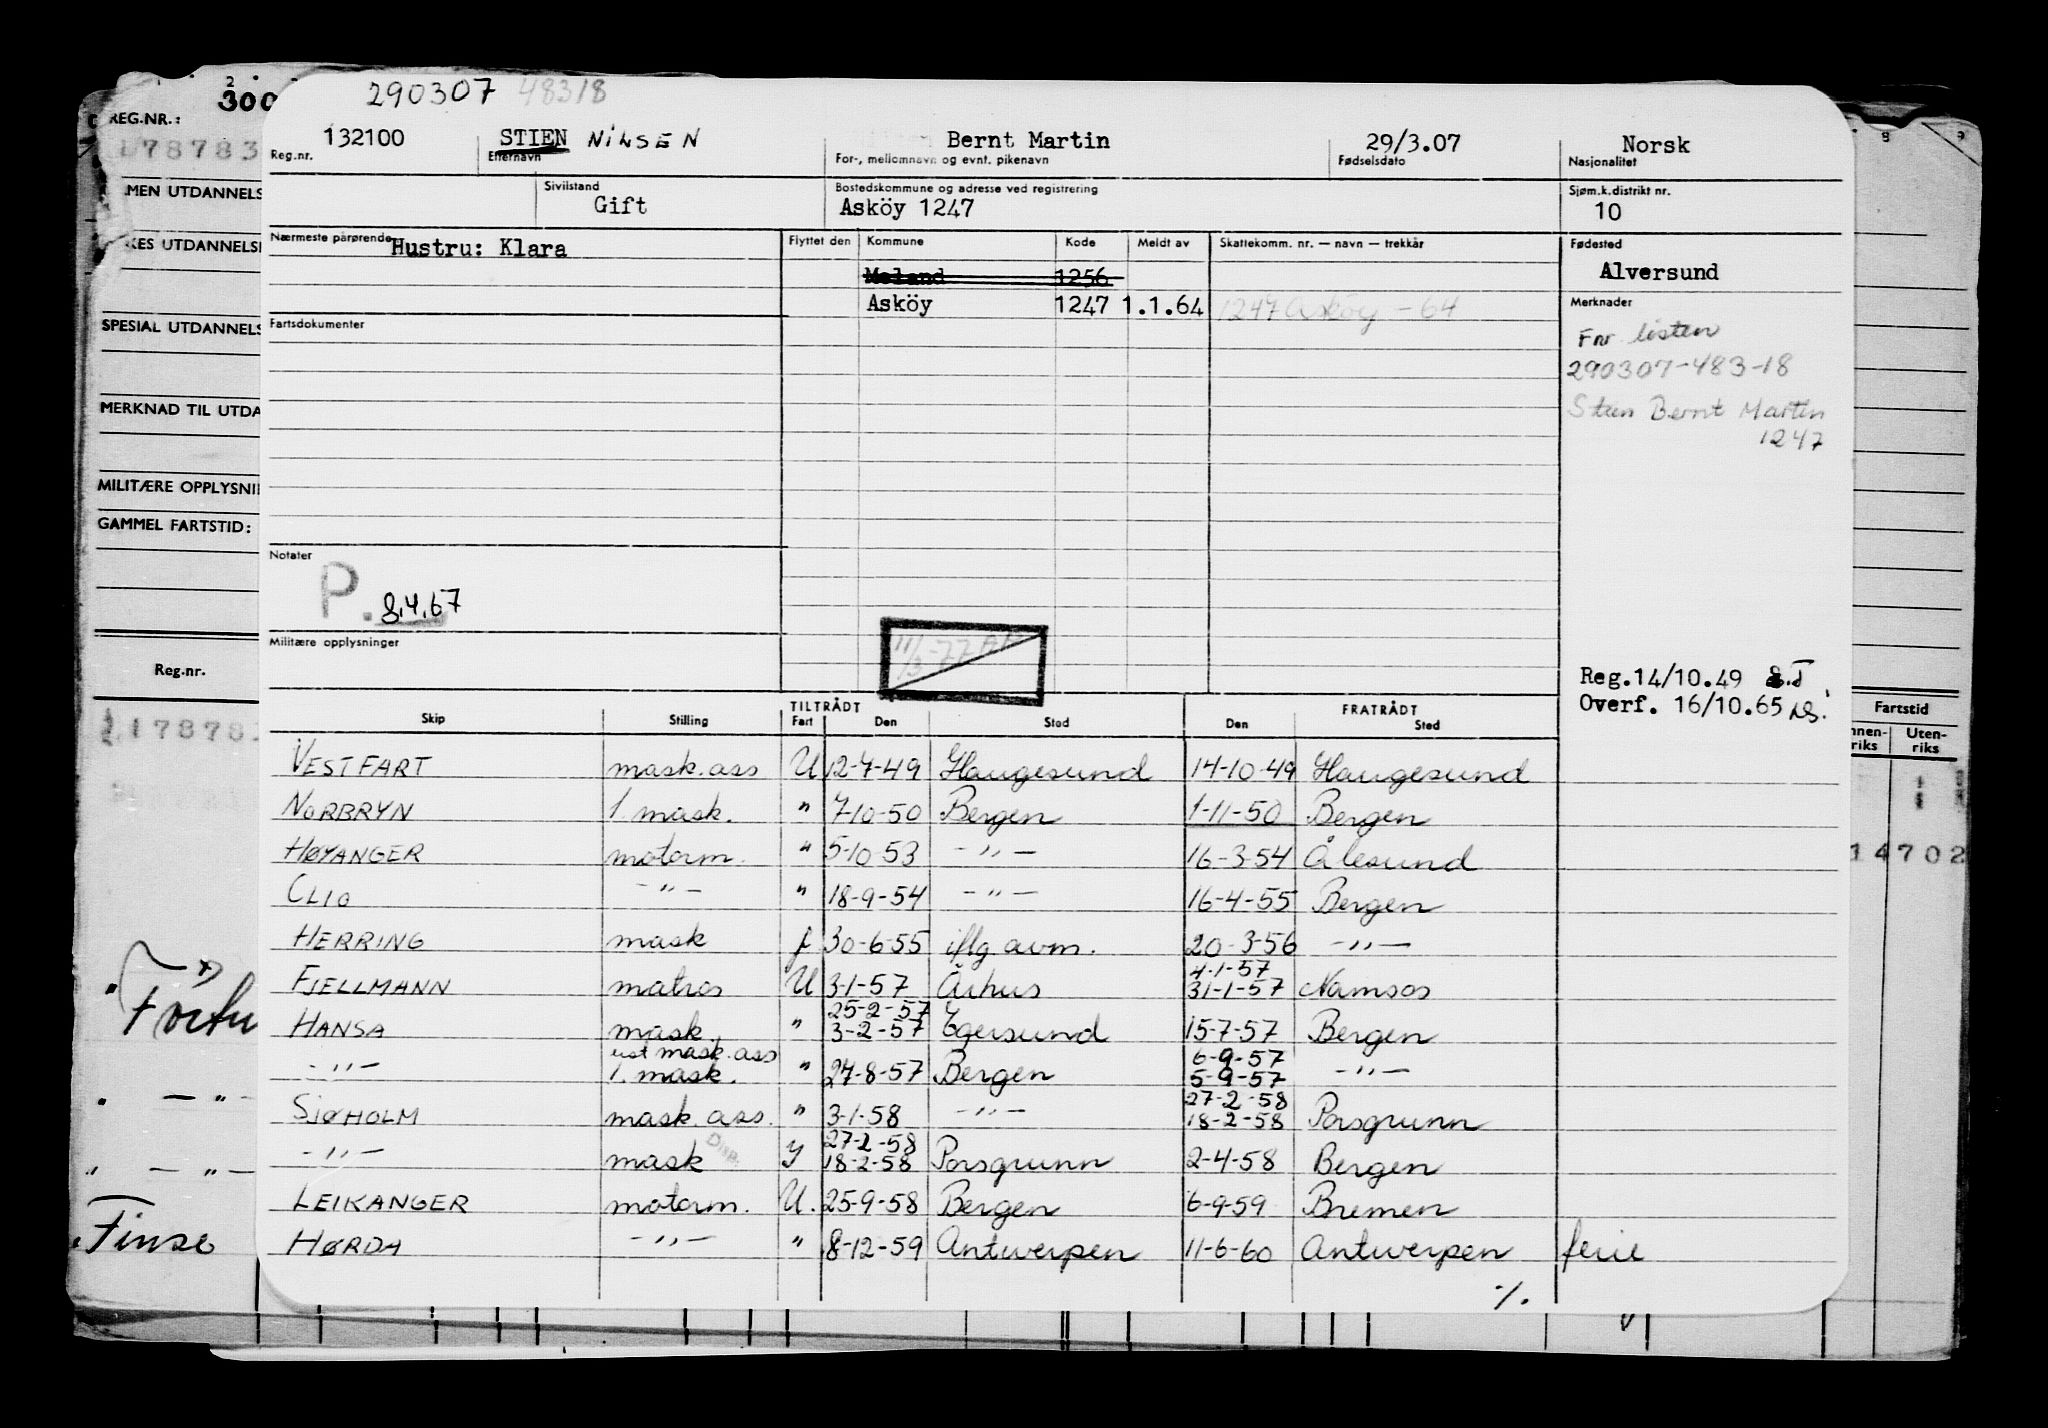 290307 48318
132100 STIEN NILSEN Bernt Martin 29/3.07 Norsk
Reg.nr. Etternavn For-, mellomnavn og evnt. pikenavn Fødselsdato Nasjonalitet
Sivilstand Bostedskommune og adresse ved registrering Sjøm.k.distrikt nr.
Gift Asköy 1247 10
Nærmeste pårørende Hustru: Klara Flyttet den Kommune Kode Meldt av Skattekomm. nr. — navn — trekkår Fødested
Meland 1256 Alversund
Asköy 1247 1.1.64 1247 Asköy - 64 Merknader
Fartsdokumenter
Fnr listen
290307-483-18
Stien Bernt Martin
1247
Notater
P. 8.4.67
Militære opplysninger
11/3-77
Reg.14/10.49
Overf. 16/10.65
TILTRÅDT FRATRÅDT
Skip Stilling Fart Den Sted Den Sted
VESTFART mask.ass U 12-7-49 Haugesund 14-10-49 Haugesund
NORBRYN 1. mask. " 7-10-50 Bergen 1-11-50 Bergen
HØYANGER motorm. " 5-10-53 -"- 16-3-54 Ålesund
CLIO -"- " 18-9-54 -"- 16-4-55 Bergen
HERRING mask f 30-6-55 iflg avm. 20-3-56 -"-
4-1-57
FJELLMANN matros U 3-1-57 Århus 31-1-57 Namsos
25-2-57
HANSA mask. " 3-2-57 Egersund 15-7-57 Bergen
ust mask.ass 6-9-57
-"- 1. mask. " 27-8-57 Bergen 5-9-57 -"-
27-2-58
SJØHOLM mask.ass. " 3-1-58 -"- 18-2-58 Porsgrunn
Disp. 27-2-58
-"- mask y 18-2-58 Porsgrunn 2-4-58 Bergen
LEIKANGER motorm. U. 25-9-58 Bergen 6-9-59 Bremen
HØRDA -"- " 8-12-59 Antwerpen 11-6-60 Antwerpen ferie
·/.
2
300
REG.NR.:
178783
MEN UTDANNELS
KES UTDANNELSE
SPESIAL UTDANNELS
MERKNAD TIL UTDA
MILITÆRE OPPLYSNI
GAMMEL FARTSTID:
Reg.nr.
178783
" -"-
" -"-
Finse
8 9
Fartstid
nnen-riks Uten-riks
14702